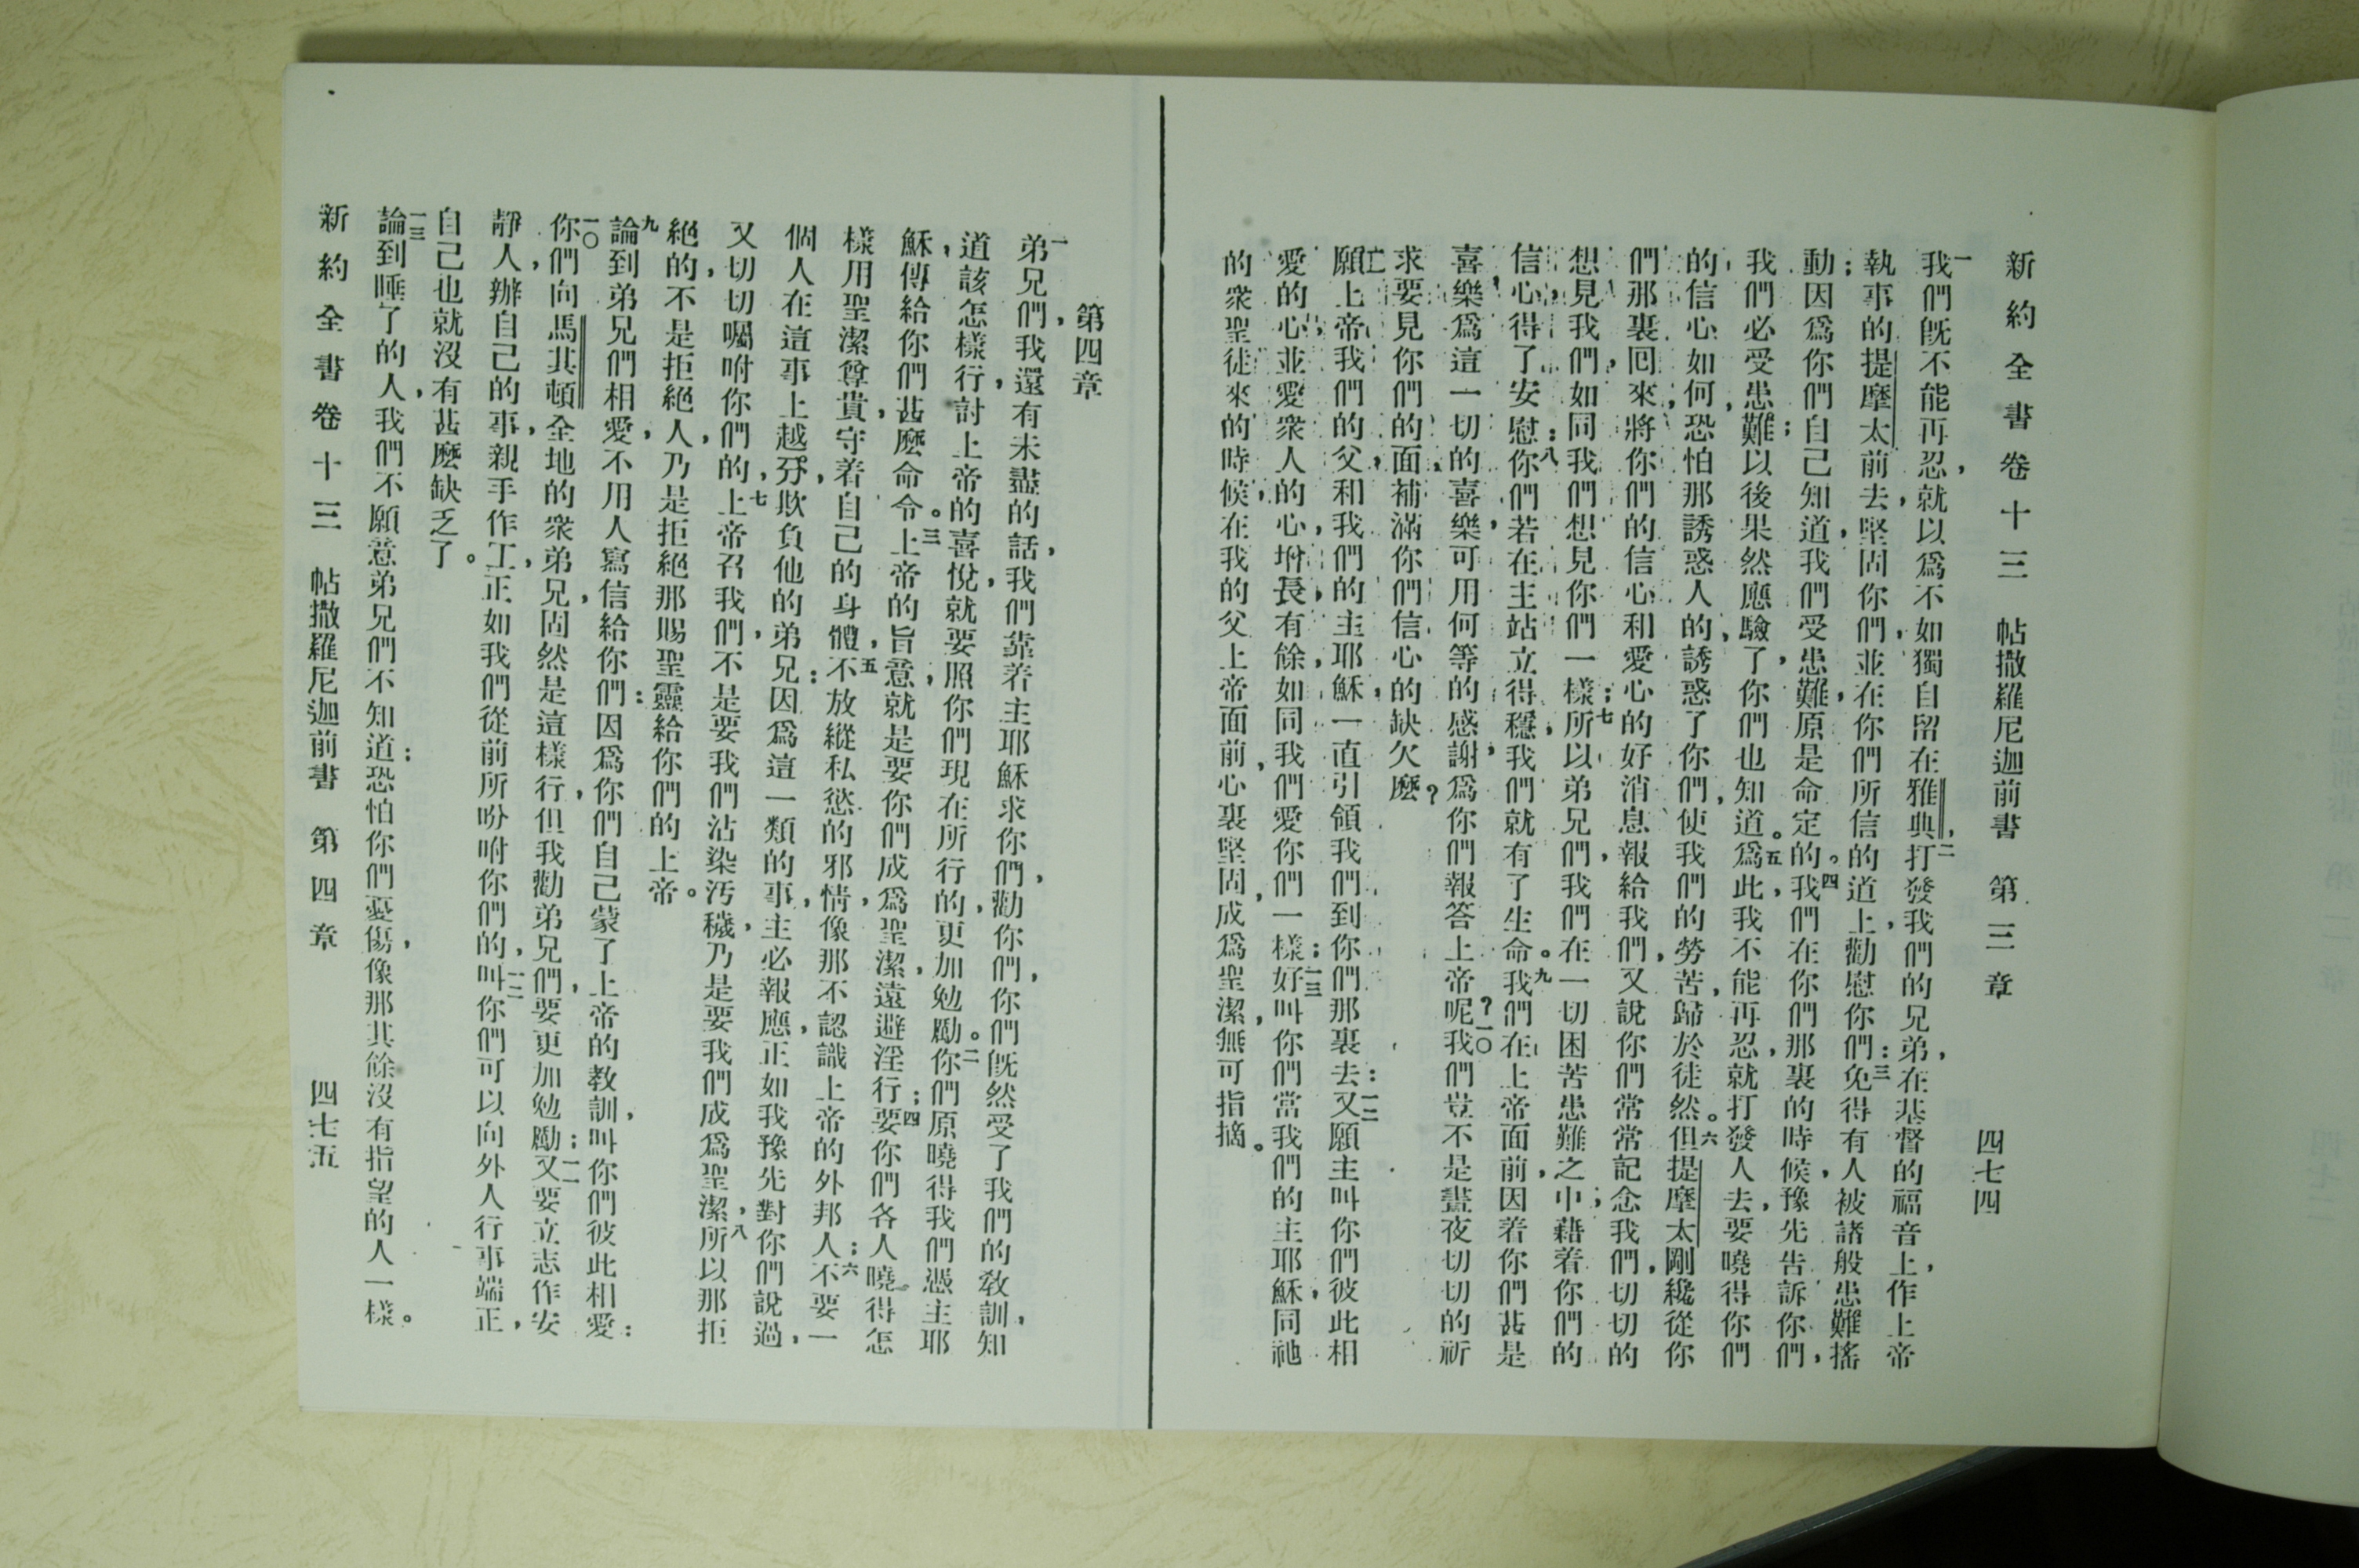 新約全書卷十三 帖撒羅尼迦前書 第三章 四七四
一我們旣不能再忍，就以爲不如獨自留在雅典，二打發我們的兄弟，在基督的福音上，作上帝
執事的提摩太前去，堅固你們，並在你們所信的道上，勸慰你們：三免得有人被諸般患難搖
動；因爲你們自己知道，我們受患難，原是命定的。四我們在你們那裏的時候，豫先告訴你們，
我們必受患難；以後果然應驗了，你們也知道。五爲此，我不能再忍，就打發人去，要曉得你們
的信心如何，恐怕那誘惑人的，誘惑了你們，使我們的勞苦，歸於徒然。六但提摩太剛纔從你
們那裏回來，將你們的信心和愛心的好消息，報給我們，又說你們常常記念我們，切切的
想見我們，如同我們想見你們一樣；七所以弟兄們，我們在一切困苦患難之中，藉着你們的
信心，得了安慰：八你們若在主站立得穩，我們就有了生命。九我們在上帝面前，因着你們甚是
喜樂，爲這一切的喜樂，可用何等的感謝，爲你們報答上帝呢？一〇我們豈不是晝夜切切的祈
求，要見你們的面，補滿你們信心的缺欠麽？
一一願上帝我們的父，和我們的主耶穌，一直引領我們到你們那裏去：一二又願主叫你們彼此相
愛的心，並愛衆人的心，增長，有餘，如同我們愛你們一樣；一三好叫你們當我們的主耶穌，同祂
的衆聖徒來的時候，在我的父上帝面前，心裏堅固，成爲聖潔，無可指摘。
第四章
一弟兄們，我還有未盡的話，我們靠着主耶穌求你們，勸你們，你們旣然受了我們的教訓，知
道該怎樣行，討上帝的喜悅，就要照你們現在所行的，更加勉勵。二你們原曉得我們憑主耶
穌，傳給你們甚麽命令。三上帝的旨意，就是要你們成爲聖潔，遠避淫行；四要你們各人曉得怎
樣用聖潔尊貴，守着自己的身體，五不放縱私慾的邪情，像那不認識上帝的外邦人；六不要一
個人在這事上越分，欺負他的弟兄：因爲這一類的事，主必報應，正如我豫先對你們說過，
又切切囑咐你們的，七上帝召我們，不是要我們沾染汚穢，乃是要我們成爲聖潔，八所以那拒
絕的，不是拒絕人，乃是拒絕那賜聖靈給你們的上帝。
九論到弟兄們相愛，不用人寫信給你們：因爲你們自己蒙了上帝的教訓，叫你們彼此相愛：
一〇你們向馬其頓全地的衆弟兄，固然是這樣行，但我勸弟兄們，要更加勉勵；一一又要立志作安
靜人，辦自己的事，親手作工，正如我們從前所吩咐你們的，一二叫你們可以向外人行事端正，
自己也就沒有甚麽缺乏了。
一三論到睡了的人，我們不願意弟兄們不知道：恐怕你們憂傷，像那其餘沒有指望的人一樣。
新約全書卷十三 帖撒羅尼迦前書 第四章 四七五